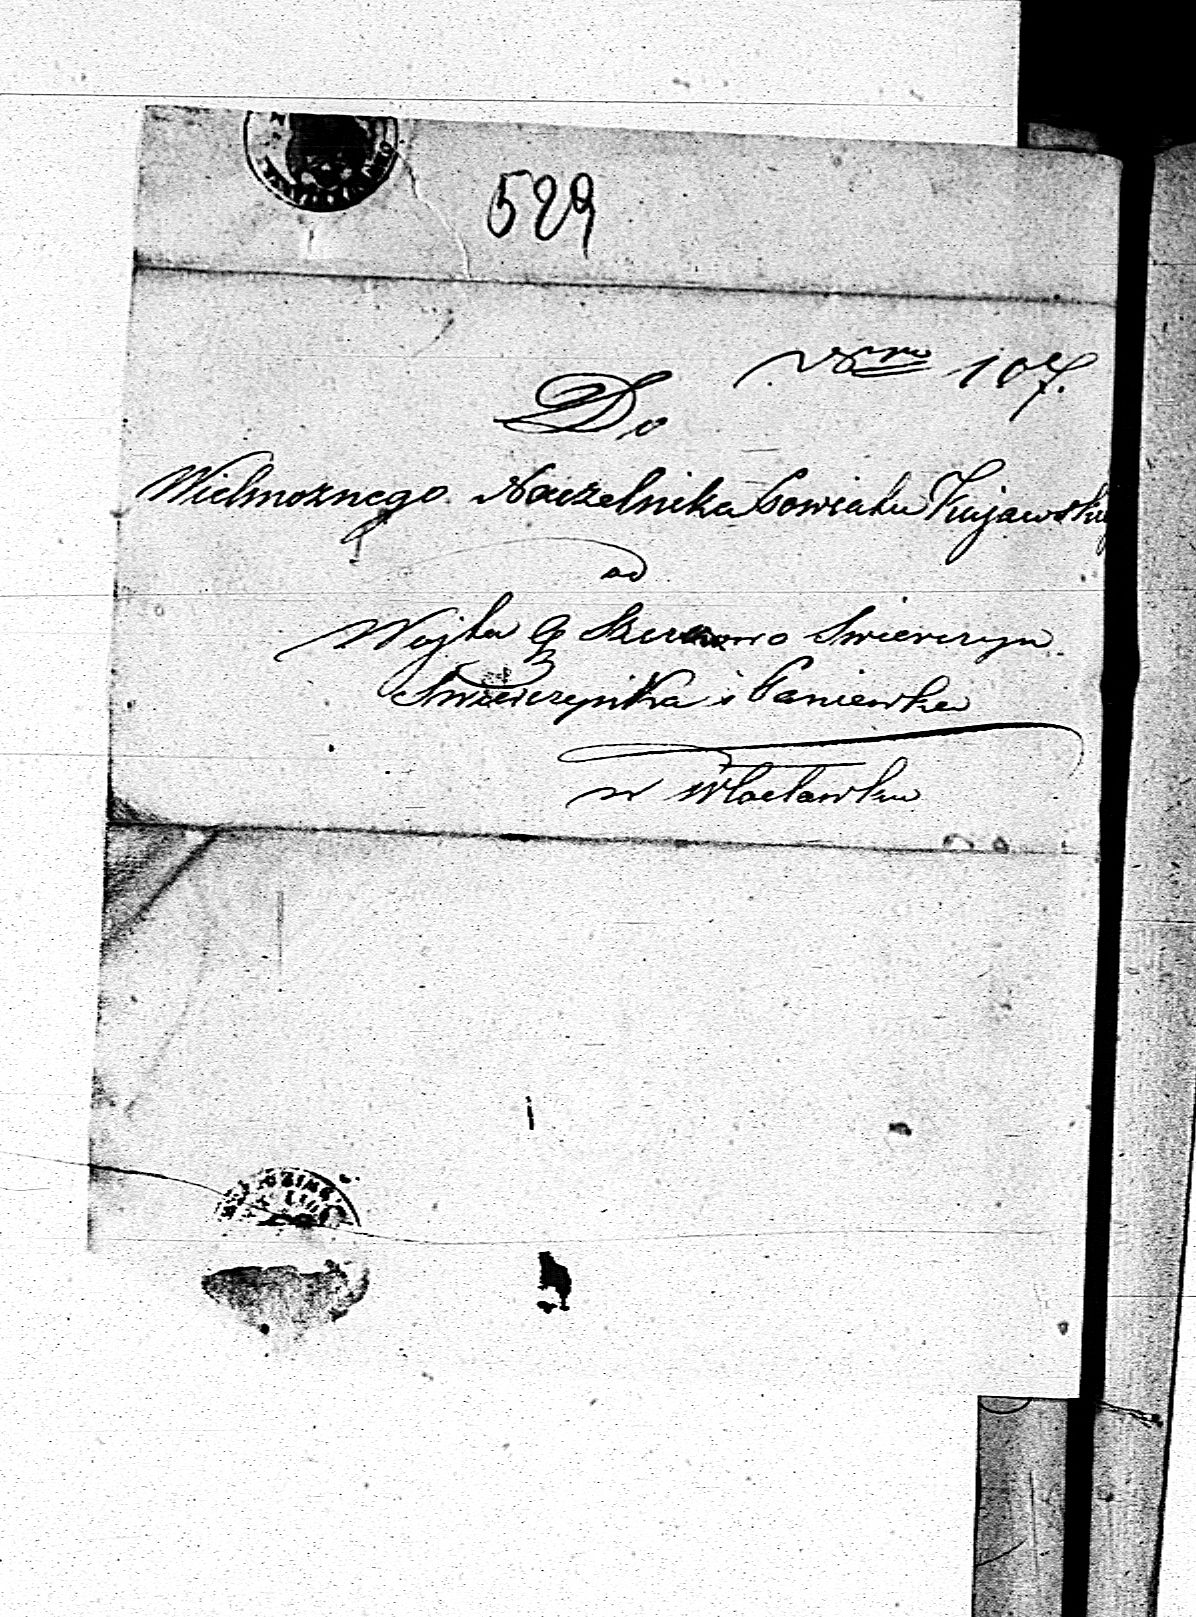 529
Nro 107.
Do
Wielmoznego Naczelnika Powiatu Kujawskieg
od
Wojta G Swierczyn
Swierczynka i Paniewka
w Wloclawku